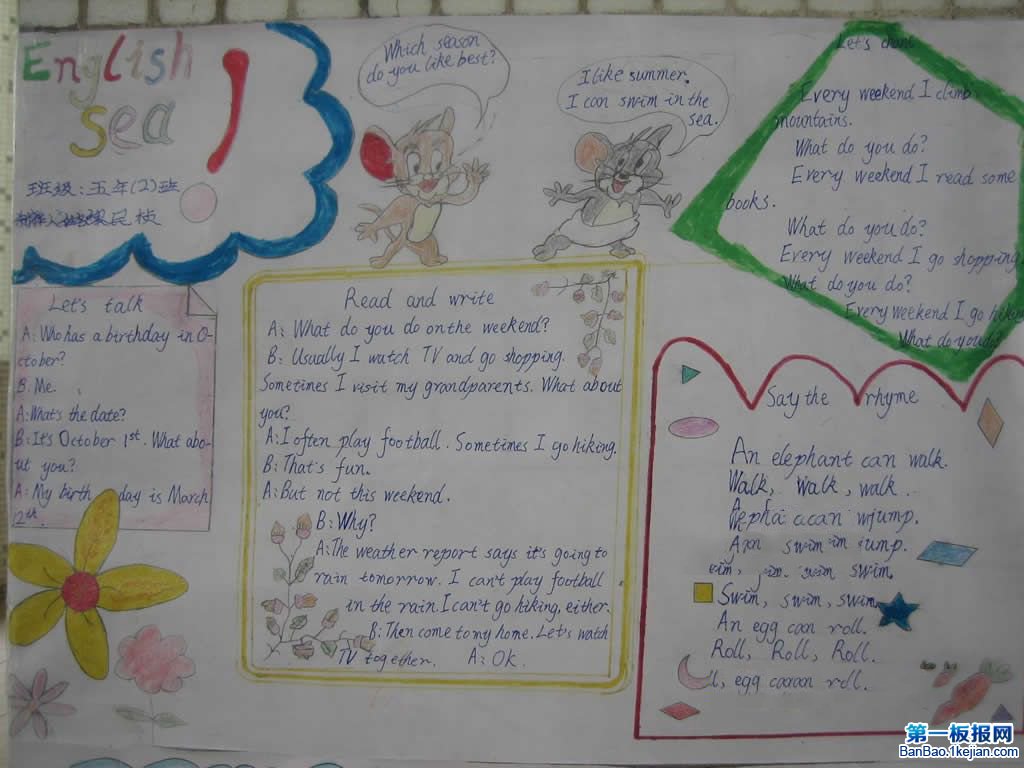 English
Sea
班级:五年(2)班
Which season
do you like best?
I like summer.
I can swim in the
sea.
Let's chant
Every weekend I climb
mountains.
What do you do?
Every weekend I read some
books.
What do you do?
Every weekend I go shopping
What do you do?
Every weekend I go hiking
What do you do?
Let's talk
A: Who has a birthday in O-
ctober?
B: Me.
A: What's the date?
B: It's October 1st. What abo-
ut you?
A: My birthday is March
12th.
Read and write
A: What do you do on the weekend?
B: Usually I watch TV and go shopping.
Sometimes I visit my grandparents. What about
you?
A: I often play football. Sometimes I go hiking.
B: That's fun.
A: But not this weekend.
B: Why?
A: The weather report says it's going to
rain tomorrow. I can't play football
in the rain. I can't go hiking, either.
B: Then come to my home. Let's watch
TV together. A: OK.
Say the rhyme
An elephant can walk.
Walk, walk, walk.
swim jump.
swim.
Swim, swim, swim.
An egg can roll.
Roll, Roll, Roll.
egg roll.
第一板报网
BanBao.1kejian.com